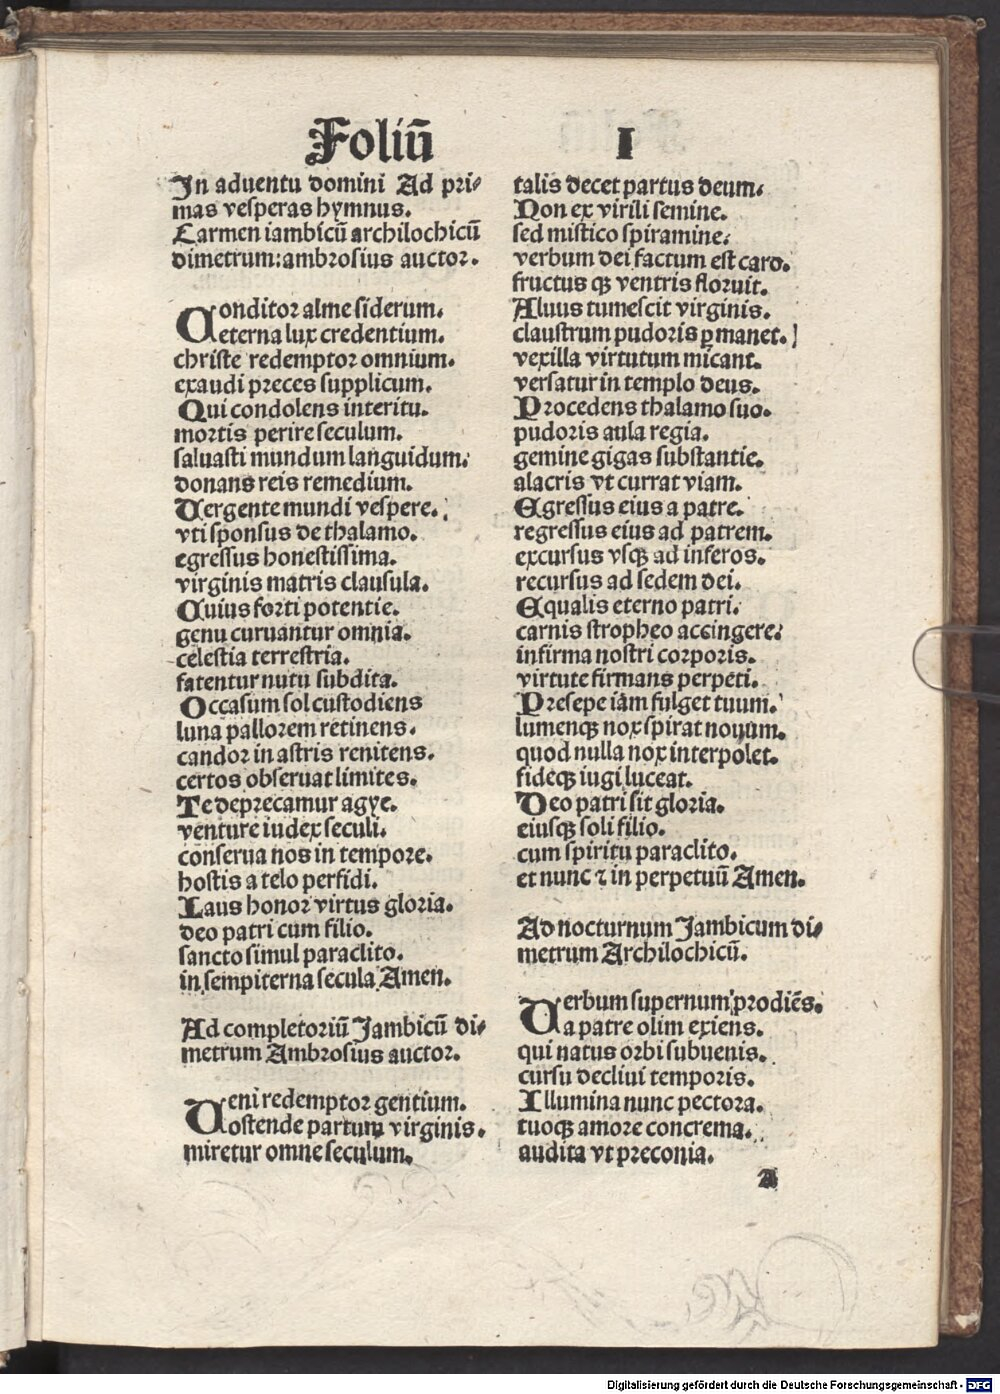 Foliū I
In aduentu domini Ad pri⸗
mas vesperas hymnus.
Carmen iambicū archilochicū
dimetrum: ambrosius auctor.
Conditor alme siderum.
aeterna lux credentium.
christe redemptor omnium.
exaudi preces supplicum.
Qui condolens interitu.
mortis perire seculum.
saluasti mundum languidum.
donans reis remedium.
Uergente mundi vespere.
vti sponsus de thalamo.
egressus honestissima.
virginis matris clausula.
Cuius forti potentie.
genu curuantur omnia.
celestia terrestria.
fatentur nutu subdita.
Occasum sol custodiens
luna pallorem retinens.
candor in astris renitens.
certos obseruat limites.
Te deprecamur agye.
venture iudex seculi.
conserua nos in tempore.
hostis a telo perfidi.
Laus honor virtus gloria.
deo patri cum filio.
sancto simul paraclito.
in sempiterna secula Amen.
Ad completoriū Jambicū di⸗
metrum Ambrosius auctor.
Ueni redemptor gentium.
ostende partum virginis.
miretur omne seculum.
talis decet partus deum.
Non ex virili semine.
sed mistico spiramine.
verbum dei factum est caro.
fructus qꝫ ventris floruit.
Aluus tumescit virginis.
claustrum pudoris ꝑmanet.
vexilla virtutum micant.
versatur in templo deus.
Procedens thalamo suo.
pudoris aula regia.
gemine gigas substantie.
alacris vt currat viam.
Egressus eius a patre.
regressus eius ad patrem.
excursus vsqꝫ ad inferos.
recursus ad sedem dei.
Equalis eterno patri.
carnis stropheo accingere.
infirma nostri corporis.
virtute firmans perpeti.
Presepe iam fulget tuum.
lumenqꝫ nox spirat nouum.
quod nulla nox interpolet.
fideqꝫ iugi luceat.
Deo patri sit gloria.
eiusqꝫ soli filio.
cum spiritu paraclito.
et nunc ⁊ in perpetuū Amen.
Ad nocturnum Jambicum di⸗
metrum Archilochicū.
Uerbum supernum prodiēs.
a patre olim exiens.
qui natus orbi subuenis.
cursu decliui temporis.
Illumina nunc pectora.
tuoqꝫ amore concrema.
audita vt preconia.
A
Digitalisierung gefördert durch die Deutsche Forschungsgemeinschaft - DFG